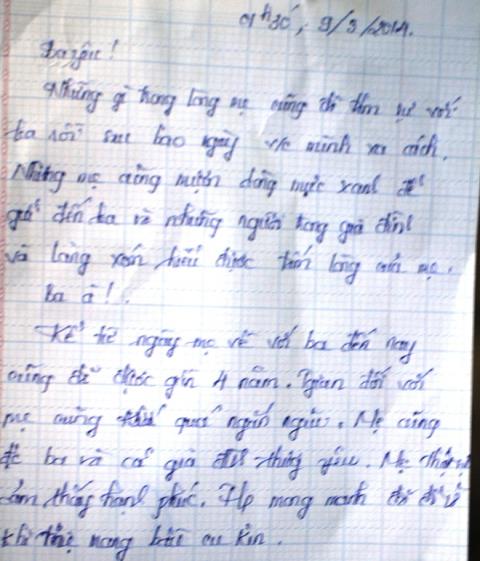 01h30, 9/3/2014.
Ba yêu!
Những gì trong lòng mẹ cũng đã tâm sự với
ba rồi sau bao ngày v/c mình xa cách.
Nhưng mẹ cũng mượn dòng mực xanh để
gửi đến ba và những người trong gia đình
và làng xóm hiểu được tấm lòng của mẹ.
Ba à!
Kể từ ngày mẹ về với ba đến nay
cũng đã được gần 4 năm. gian đối với
mẹ cũng quá ngắn ngủi. Mẹ cũng
đc ba và cả gia đình thương yêu. Mẹ thật
cảm thấy hạnh phúc. Hp mong manh đó đã
khi mẹ mang bầu cu Kin.